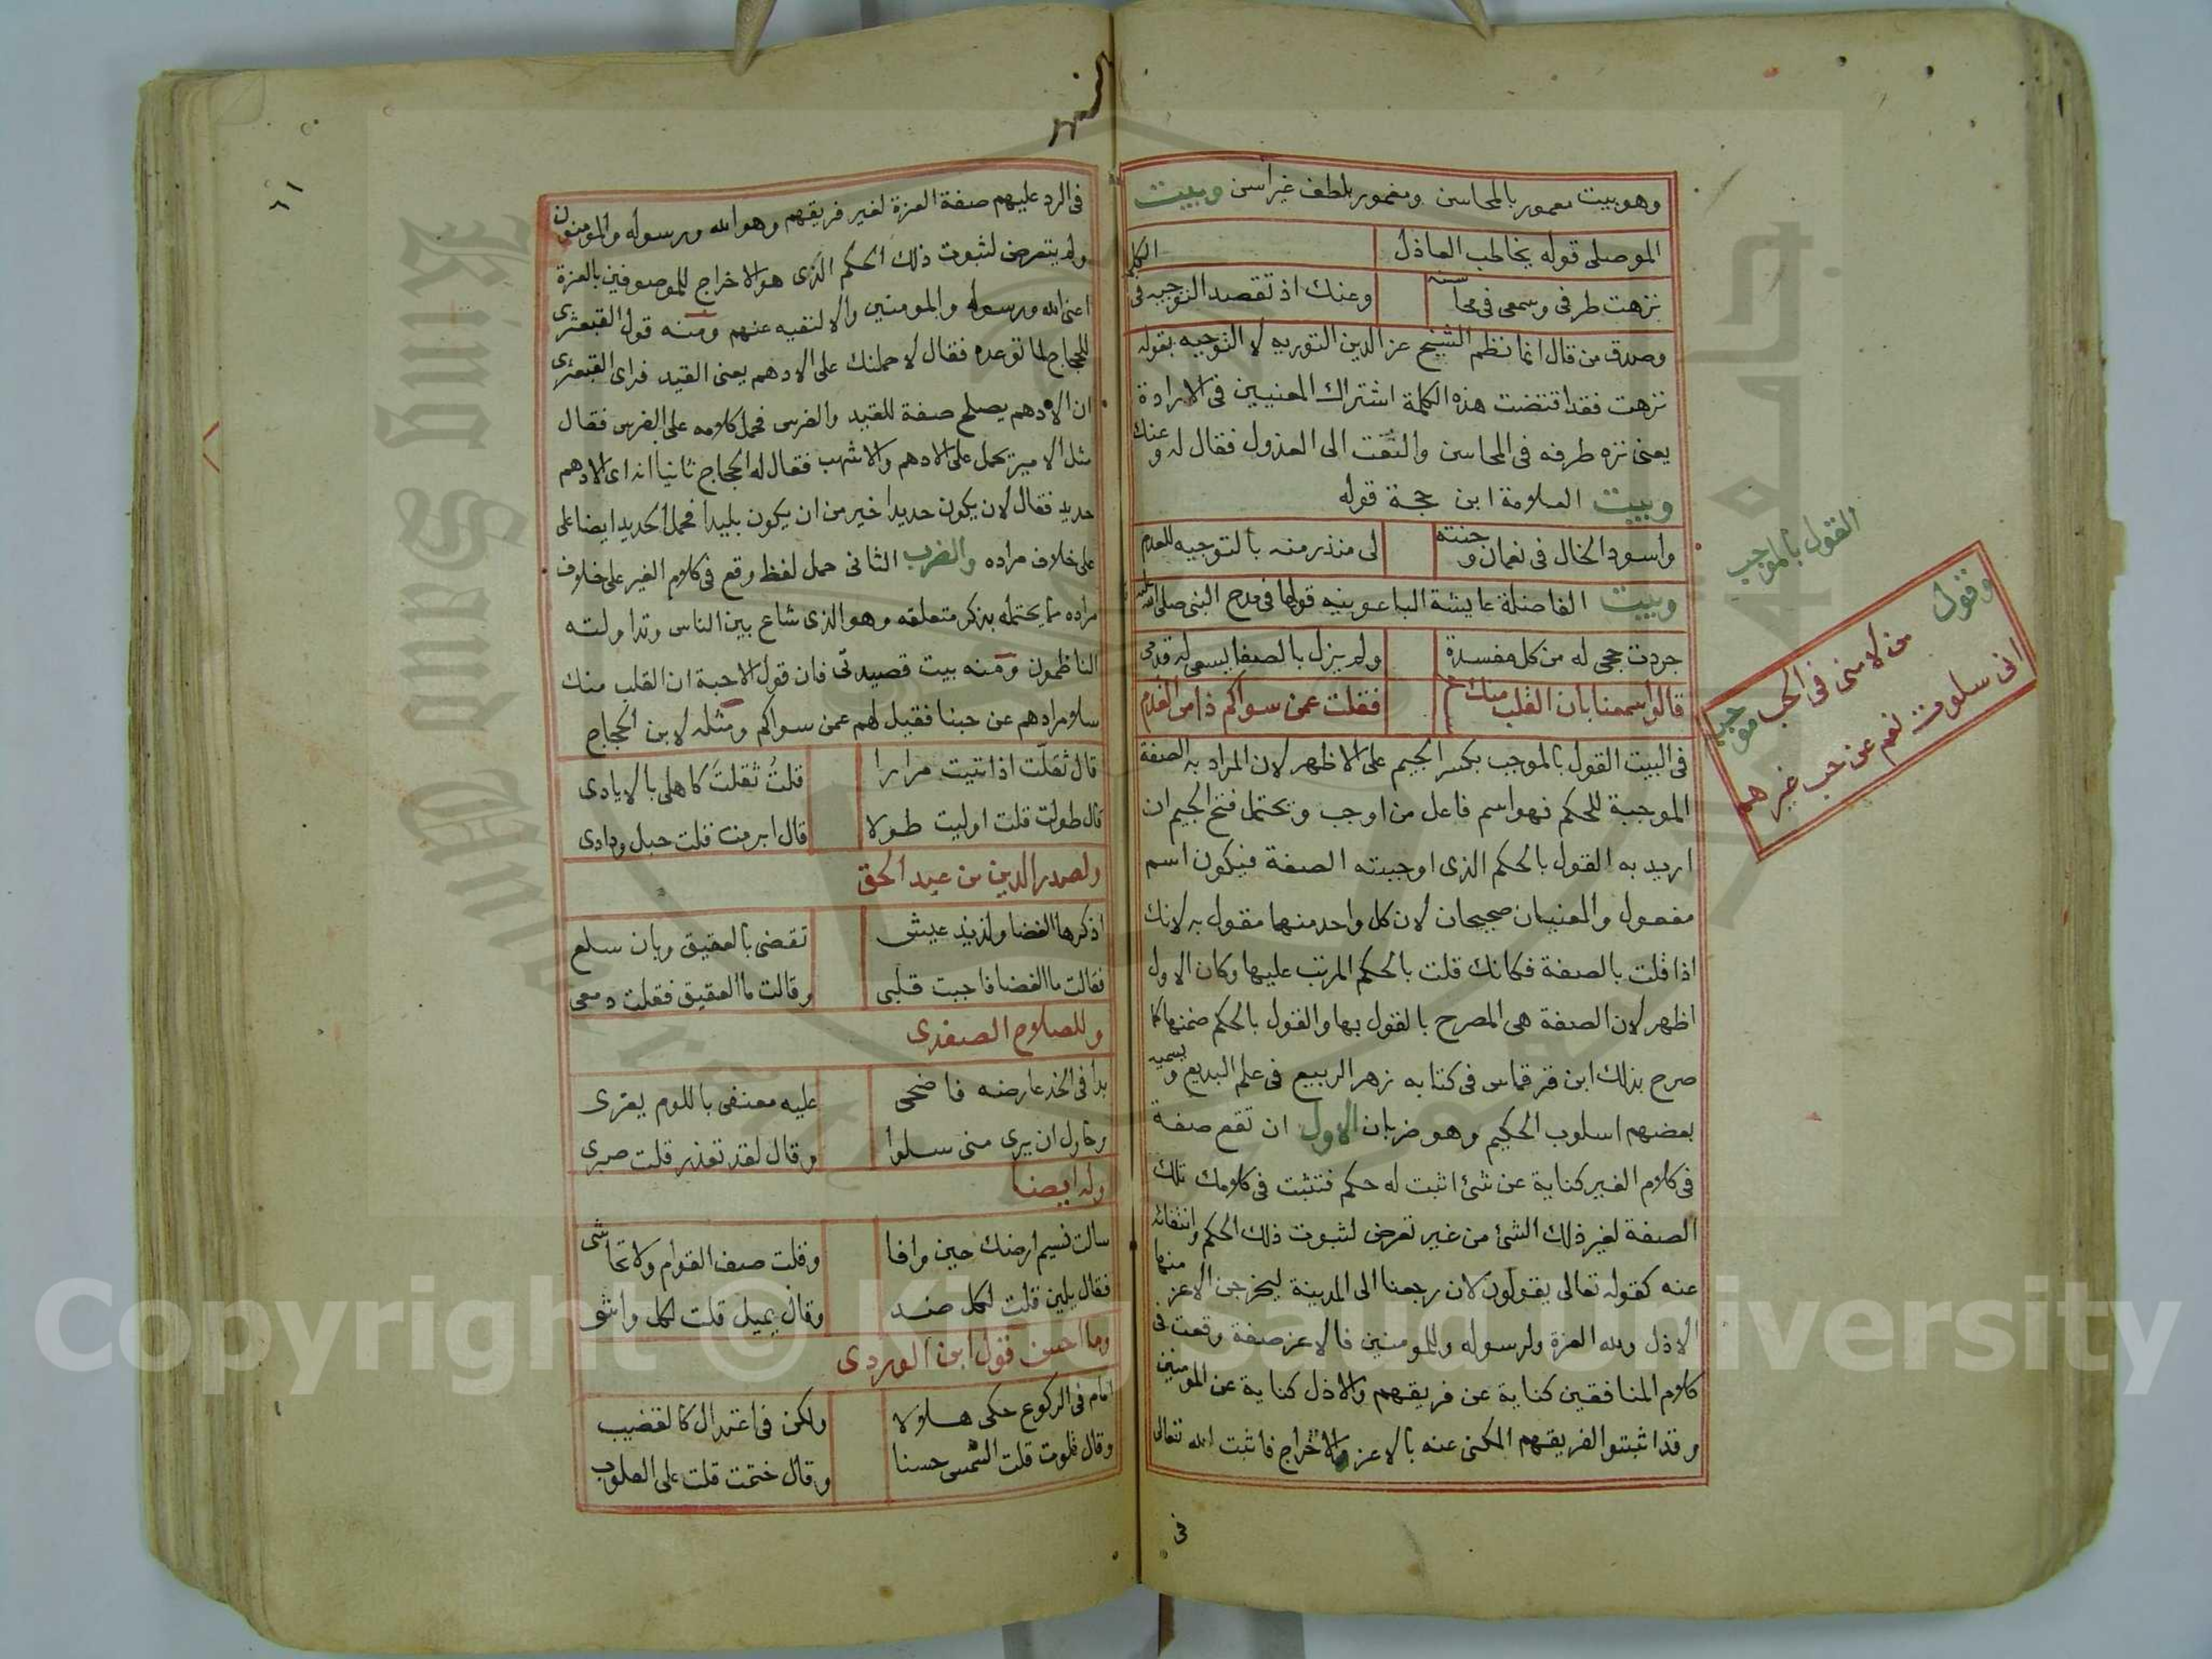 وهو بيت معمور بالمحاسن ومغمور بلطف غير اسن وبيت
الموصلى قوله يخاطب العاذل
نزهت طرفى وسمعى فى محاسنه وعنك اذ تقصد التوجيه فى الكلم
وصدق من قال انما نظم الشيخ عز الدين التوريه لا التوجيه بقوله
نزهت فقد اقتضت هذه الكلمة اشتراك المعنيين فى الارادة
يعنى نزه طرفه فى المحاسن والتفت الى العذول فقال له وعنك
وبيت العلامة ابن حجة قوله
واسود الخال فى نعمان وجنته لى منذر منه بالتوجيه للعدم
وبيت الفاضلة عايشة الباعونيه قولها فى مدح النبى صلى الله عليه
جردت حجى له من كل مفسدة ولم يزل بالصفا يسعى له قدمى
قالوا سمعنا بان القلب منك فقلت عمن سواكم ذا من القدم
فى البيت القول بالموجب بكسر الجيم على الاظهر لان المراد به الصفة
الموجبة للحكم فهو اسم فاعل من اوجب ويحتمل فتح الجيم ان
اريد به القول بالحكم الذى اوجبته الصفة فيكون اسم
مفعول والمعنيان صحيحان لان كل واحد منهما مقول به لانك
اذا قلت بالصفة فكانك قلت بالحكم المرتب عليها وكان الاول
اظهر لان الصفة هى المصرح بالقول بها والقول بالحكم ضمنها كما
صرح بذلك ابن قرقماس فى كتابه زهر الربيع فى علم البديع ويسميه
بعضهم اسلوب الحكيم وهو ضربان الاول ان تقع صفة
فى كلام الغير كناية عن شئ اثبت له حكم فتثبت فى كلامك تلك
الصفة لغير ذلك الشئ من غير تعرض لثبوت ذلك الحكم وانتفائه
عنه كقوله تعالى يقولون لان رجعنا الى المدينة ليخرجن الاعز منها
الاذل ولله العزة ولرسوله وللمومنين فالاعز صفة وقعت فى
كلام المنافقين كناية عن فريقهم والاذل كناية عن المومنين
وقد اثبتوا لفريقهم المكنى عنه بالاعز الاخراج فاثبت الله تعالى
فى
القول بالموجب
وقول من لامنى فى الحب موجبه
انى سلوت نعم عن حب غيرهم
فى الرد عليهم صفة العزة لغير فريقهم وهو الله ورسوله والمومنون
ولم يتعرض لثبوت ذلك الحكم الذى هو الاخراج للموصوفين بالعزة
اعنى الله ورسوله والمومنين ولا لنفيه عنهم ومنه قول القبعثرى
للحجاج لما توعده فقال لاحملنك على الادهم يعنى القيد فراى القبعثرى
ان الادهم يصلح صفة للقيد والفرس فحمل كلامه على الفرس فقال
مثل الامير يحمل على الادهم والاشهب فقال له الحجاج ثانيا انه اى الادهم
حديد فقال لان يكون حديدا خير من ان يكون بليدا فحمل الحديد ايضا على
على خلاف مراده والضرب الثانى حمل لفظ وقع فى كلام الغير على خلاف
مراده مما يحتمله بذكر متعلقه وهو الذى شاع بين الناس وتداولته
الناظمون ومنه بيت قصيدتى فان قول الاحبة ان القلب منك
سلا مرادهم عن حبنا فقيل لهم عمن سواكم ومثله لابن الحجاج
قال ثقلت اذ اتيت مرارا قلت ثقلت كاهلى بالايادى
قال طولت قلت اوليت طولا قال ابرمت قلت حبل ودادى
ولصدر الدين بن عبد الحق
اذكرها الغضا ولذيذ عيش تقضى بالعقيق وبان سلع
فقالت ما الغضا فاجبت قلبى وقالت ما العقيق فقلت دمعى
وللصلاح الصفدى
بدا فى الخد عارضه فاضحى عليه معنفى باللوم يغرى
وحاول ان يرى منى سلوا وقال لقد تعذر قلت صبرى
وله ايضا
سالت نسيم ارضك حين وافا وقلت صف القوام ولا تحاشى
فقال يلين قلت لكل ضد وقال يميل قلت لكل واشى
وما احسن قول ابن الوردى
امام فى الركوع حكى هلالا ولكن فى اعتدال كالقضيب
وقال تلوت قلت الشمس حسنا وقال ختمت قلت على القلوب
Copyright © King Saud University
King Saud University